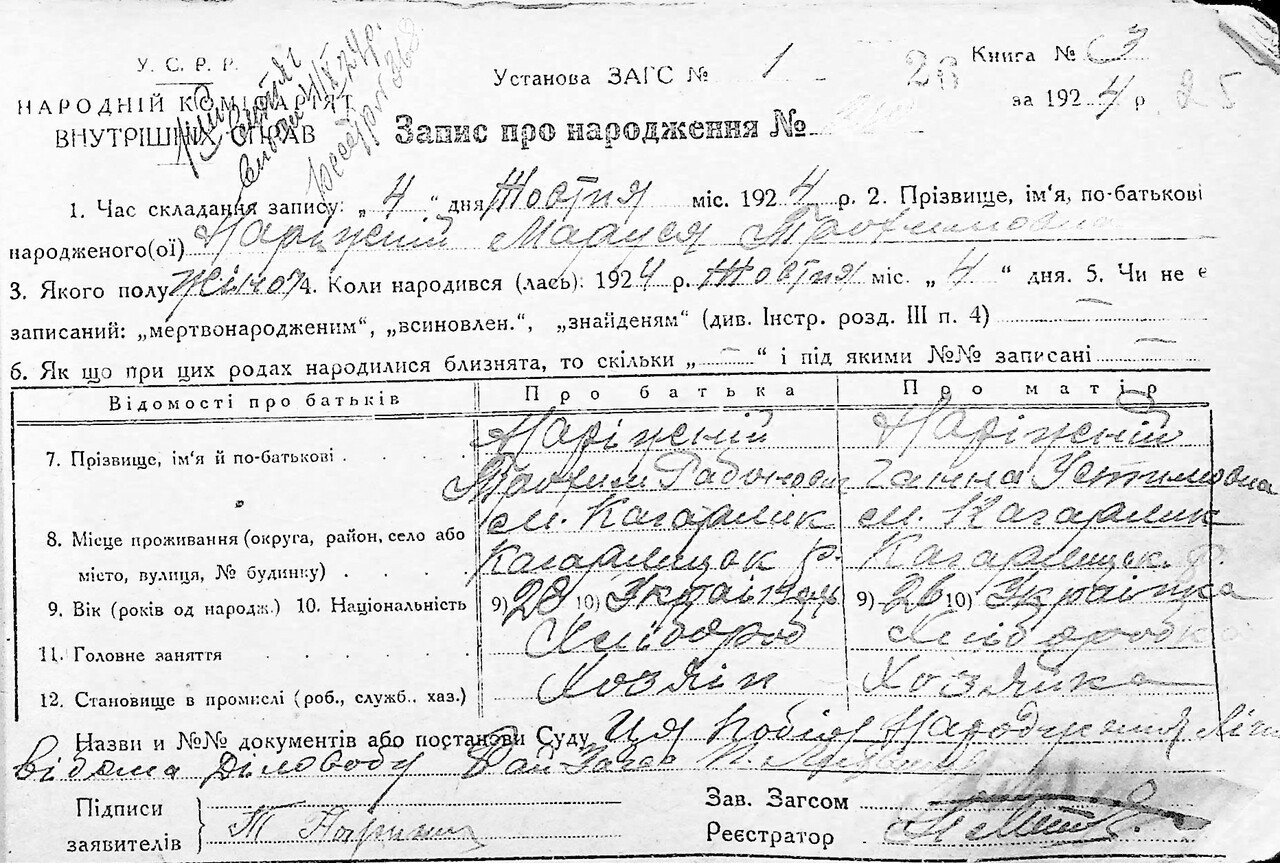 У. С. Р. Р.
НАРОДНІЙ КОМІСАРІЯТ
ВНУТРІШНІХ СПРАВ
Установа ЗАГС № 1
Книга № 3
за 1924 р
Запис про народження №
1. Час складання запису: „4“ дня Жостня міс. 1924 р. 2. Прізвище, ім'я, по-батькові
народженого(ої) Наріжній Маруся Трохимовна
3. Якого полу Жіноч 4. Коли народився (лась): 1924 р. Жостня міс. „4“ дня. 5. Чи не є
записаний: „мертвонародженим“, „всиновлен.“, „знайденям“ (див. Інстр. розд. III п. 4)
6. Як що при цих родах народилися близнята, то скільки „—“ і під якими №№ записані —
Відомості про батьків Про батька Про матір
7. Прізвище, ім'я й по-батькові Наріжній Наріжній
Трохим Ганна Устимовна
м. Кагарлик м. Кагарлик
8. Місце проживання (округа, район, село або
місто, вулиця, № будинку) Кагарлицьк р. Кагарлицьк. р.
9. Вік (років од народж.) 10. Національність 9) 28 10) Українець 9) 26 10) Українка
11. Головне заняття Хлібороб Хліборобка
12. Становище в промислі (роб., служб., хаз.) Хозяін Хозяйка
Назви и №№ документів або постанови Суду Народження
відома Діловоду
Підписи
заявителів
Т Наріжній
Зав. Загсом
Реєстратор